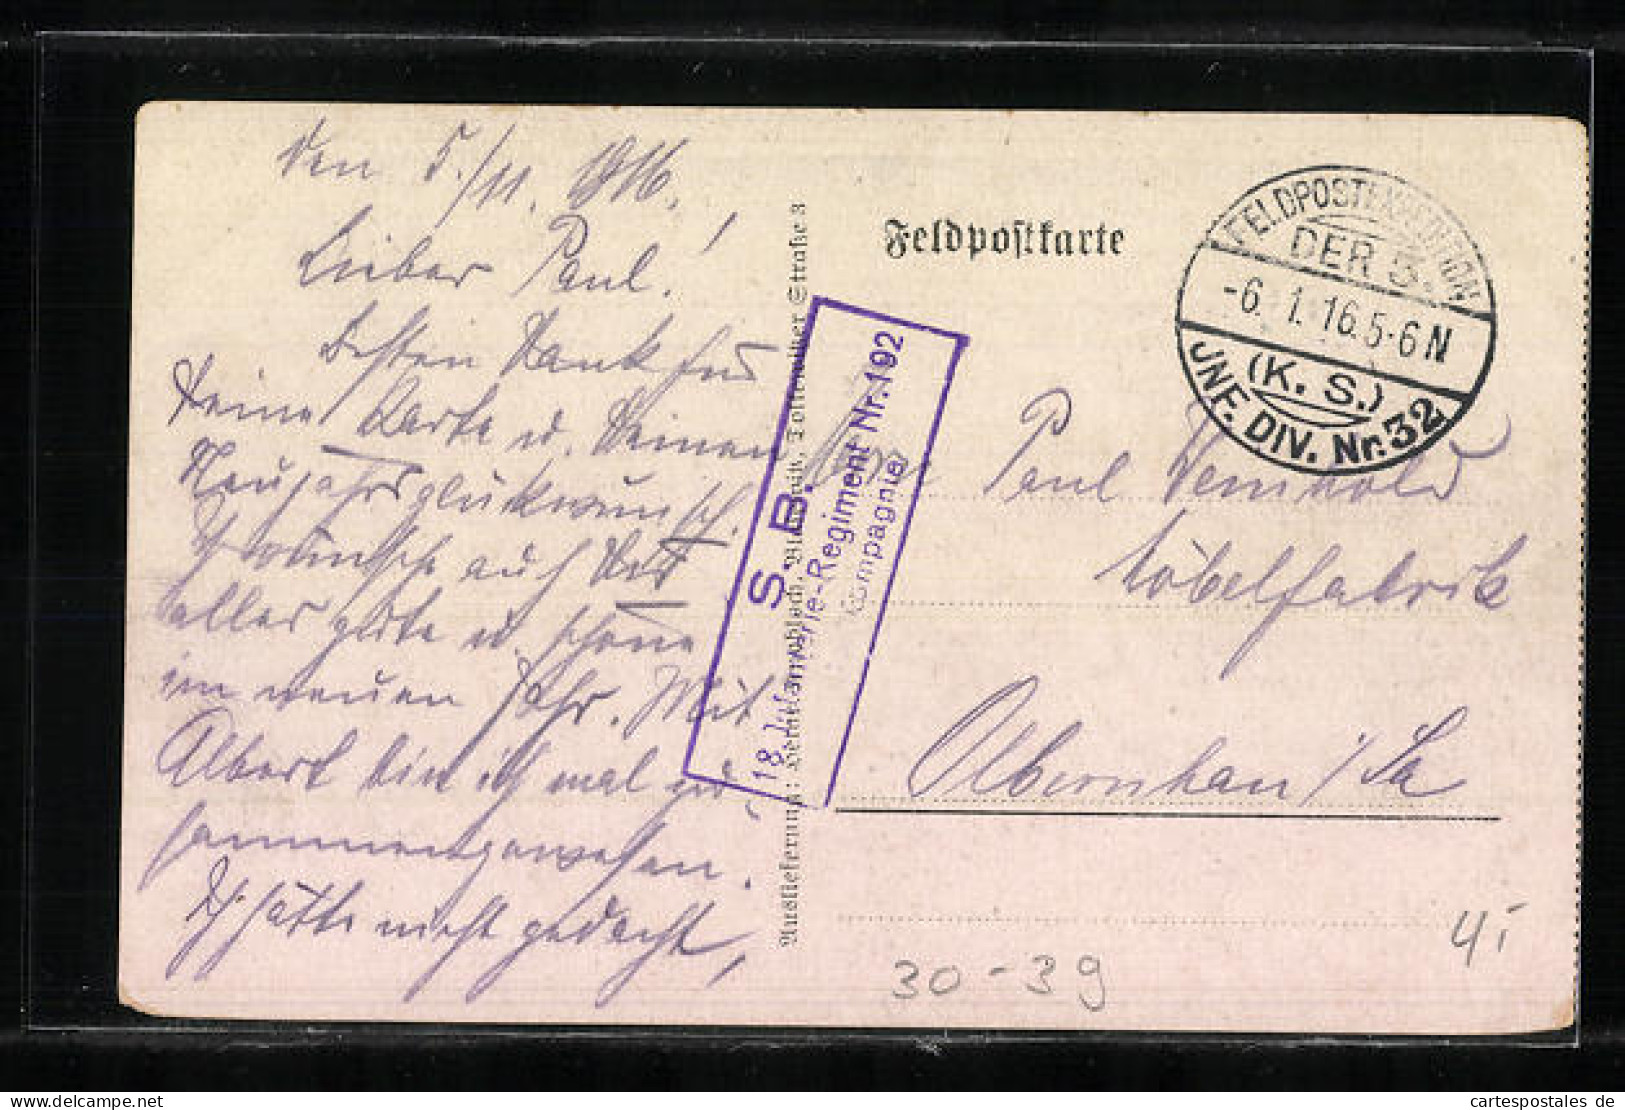 den 5./11. 1916.
Lieber Paul!
Besten Dank für
Deine Karte u. Deinen
Neujahrsglückwunsch.
Ich wünsche auch Dir
alles gute u. schöne
im neuen Jahr. Mit
Albert bin ich mal zu-
sammengewesen.
Ich hätte nicht gedacht,
Auslieferung: Straße 3
S. B.
18. Infanterie-Regiment Nr. 192
Kompagnie
Feldpostkarte
FELDPOSTEXPEDITION
DER 3.
-6. 1. 16. 5-6 N
(K. S.)
JNF. DIV. Nr. 32
Paul Weinhold
Möbelfabrik
Olbernhau i/Sa
30-39
4,-
cartespostales de
www.cartespostales.de